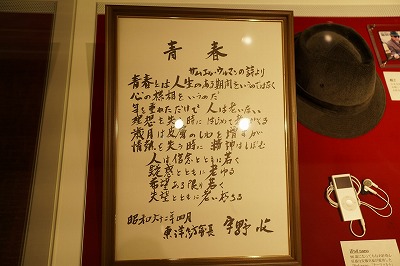 青春
サムエル・ウルマンの詩より
青春とは人生のある期間をいうのではなく
心の様相をいうのだ
年を重ねただけで人は老いない
理想を失う時にはじめて老いがくる
歳月は皮膚のしわを増すが
情熱を失う時に精神はしぼむ
人は信念とともに若く
疑惑とともに老ゆる
希望ある限り若く
失望とともに老い朽ちる
昭和六十二年四月
東洋紡会長 宇野收
iPod nano